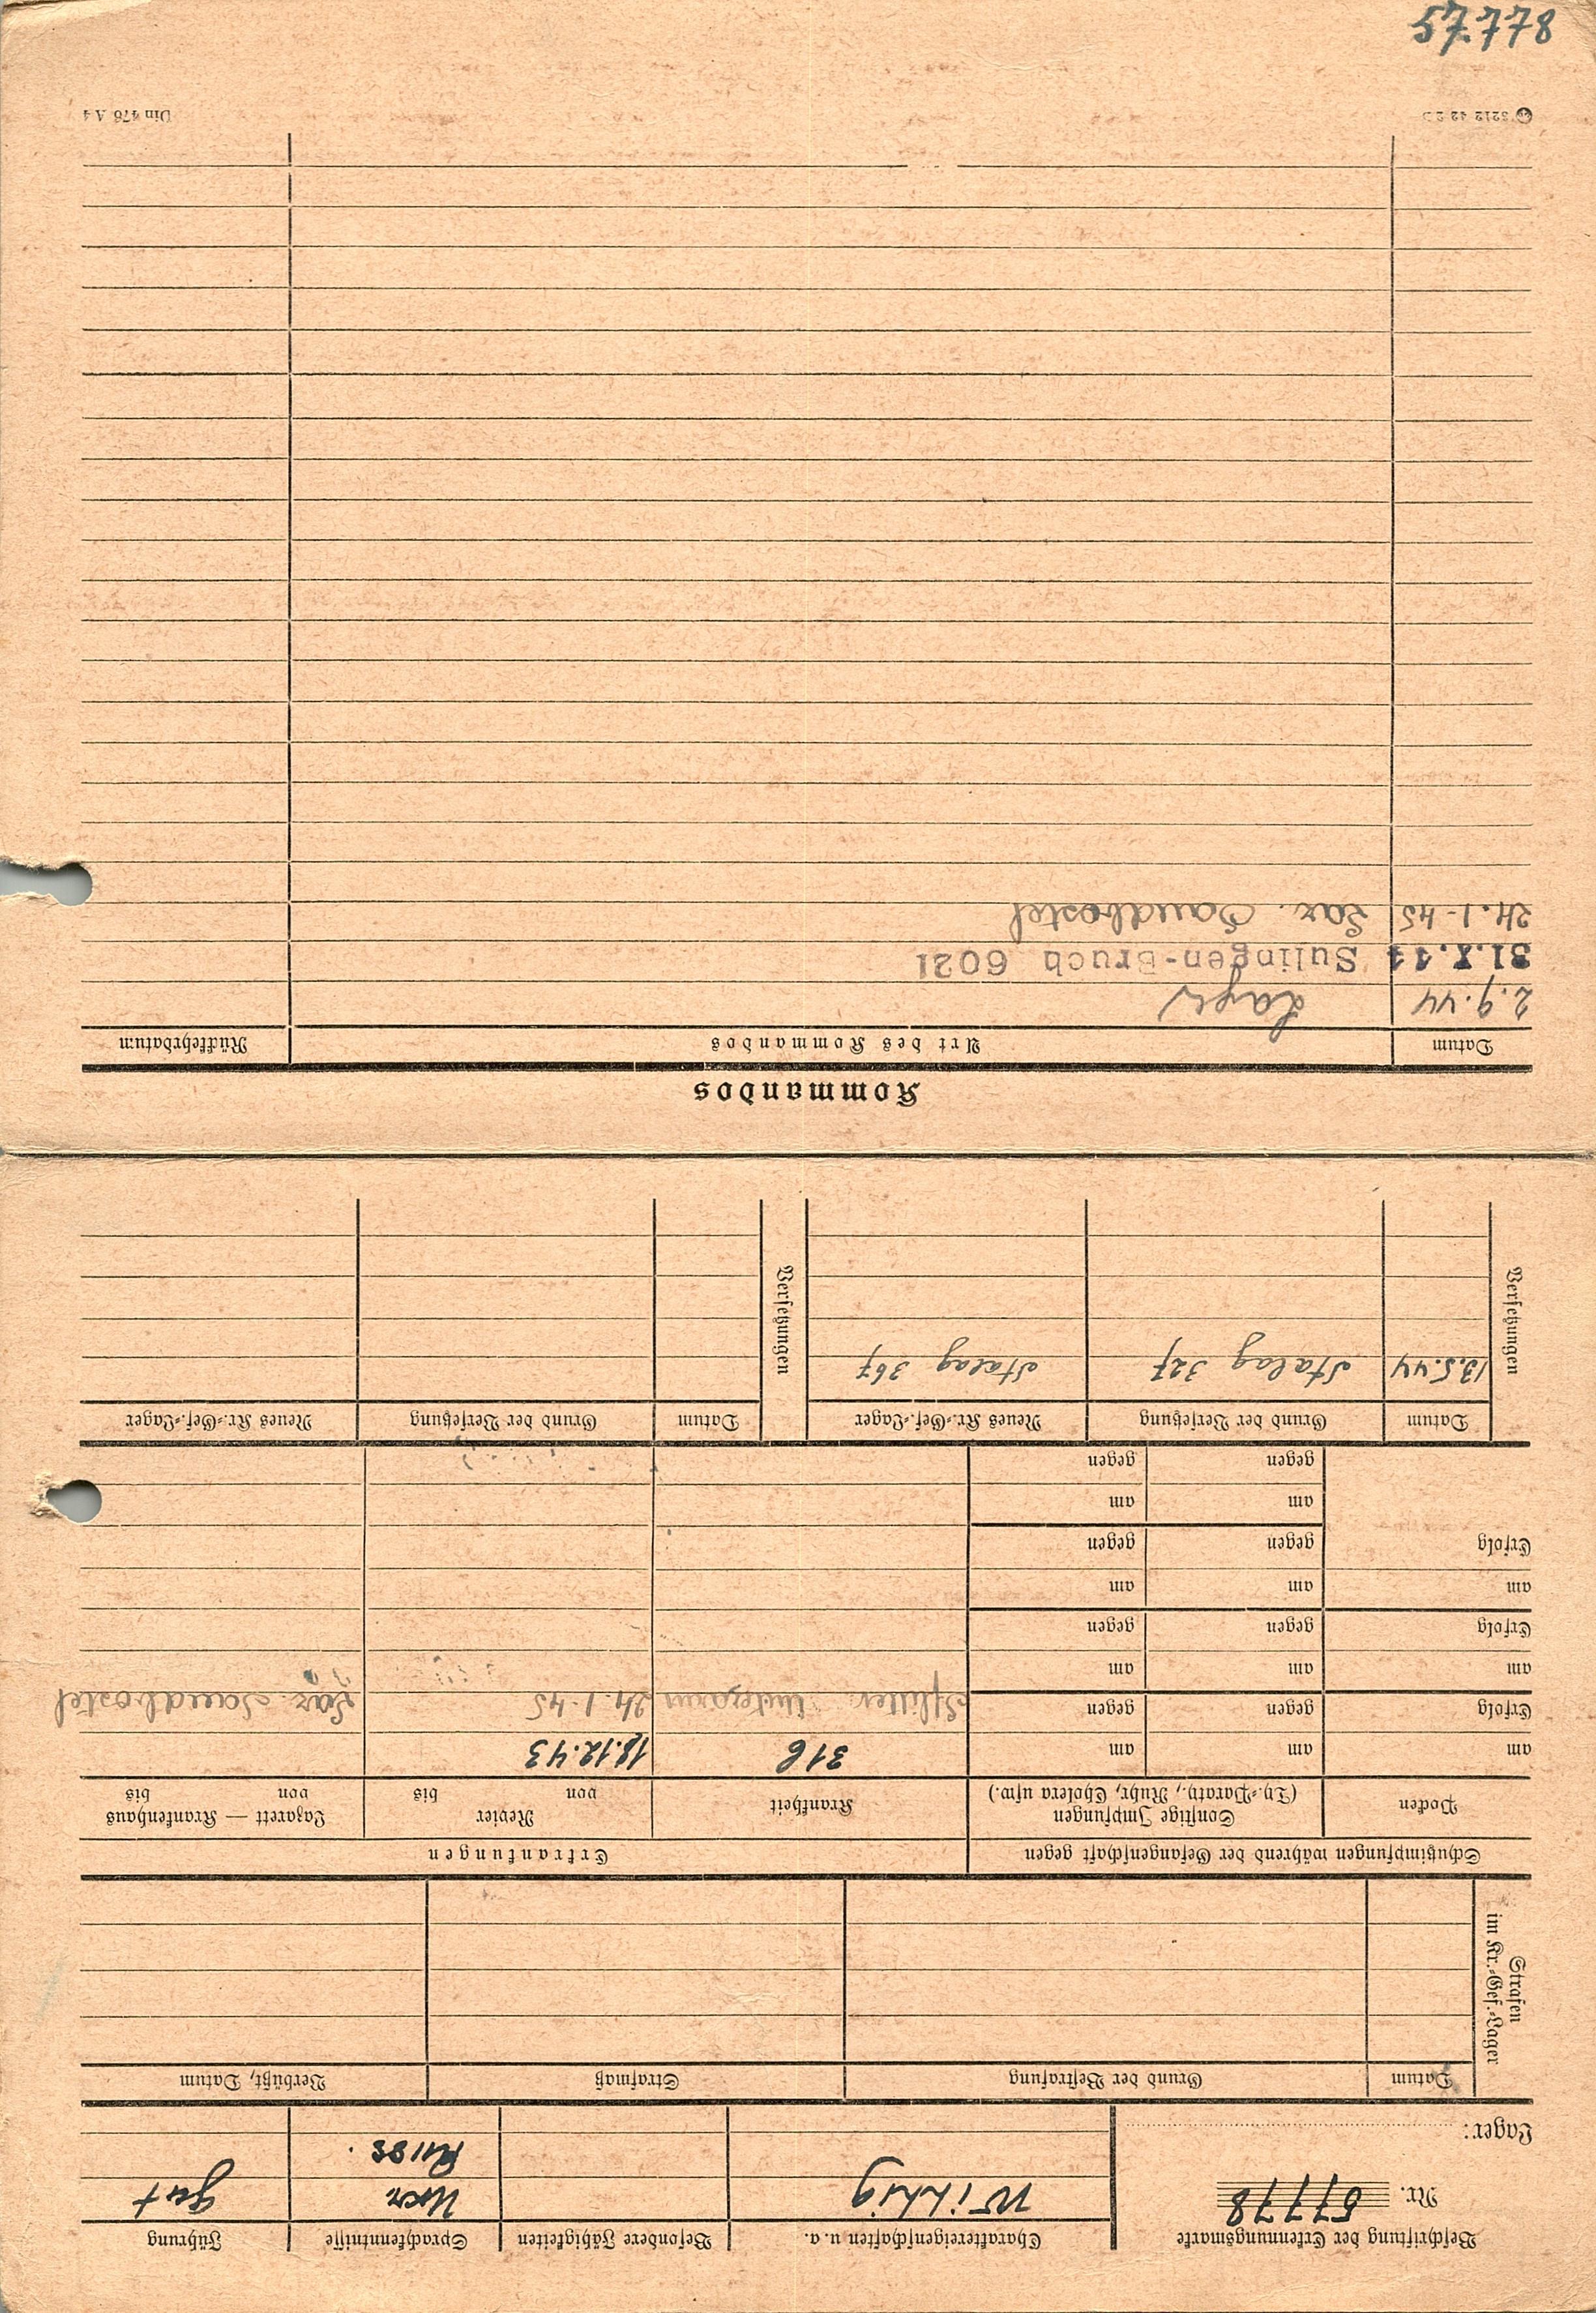 Beschriftung der Erkennungsmarke
Nr. 57778
Lager:
Charaktereigenschaften u. a.
Willig
Besondere Fähigkeiten
Sprachkenntnisse
Ukr.
Russ.
Führung
gut
Strafen
im Kr.-Gef.-Lager
Datum
Grund der Bestrafung
Strafmaß
Verbüßt, Datum
Schutzimpfungen während der Gefangenschaft gegen
Erkrankungen
Pocken
Sonstige Impfungen
(Ty.-Paraty., Ruhr, Cholera usw.)
Krankheit
Revier
von bis
Lazarett — Krankenhaus
von bis
am am am
31 18.12.43
Erfolg gegen gegen
Splitter Unterarm 24.1.45 Laz. Sandbostel
am am am
Erfolg gegen gegen
am am am
Erfolg gegen gegen
am am
gegen gegen
Versetzungen
Datum Grund der Versetzung Neues Kr.-Gef.-Lager
13.5.44 Stalag 327 Stalag 367
Versetzungen
Datum Grund der Versetzung Neues Kr.-Gef.-Lager
Kommandos
Datum Art des Kommandos Rückkehrdatum
2.9.44 Lager
31.X.44 Sulingen-Bruch 6021
24.1.45 Laz. Sandbostel
Din 476 A 4
57.778